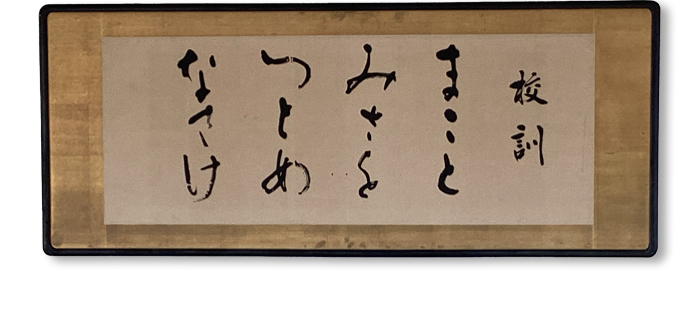 校訓
まこと
みさを
つとめ
なさけ